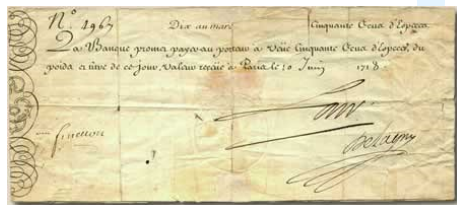 N.º 1967 Dix au marc Cinquante Ecus d'Especes.
La Banque promet payer au porteur à Veüe Cinquante Ecus d'Especes, du
poids et titre de ce jour, Valeur reçüe à Paris le 10 Juin 1718.